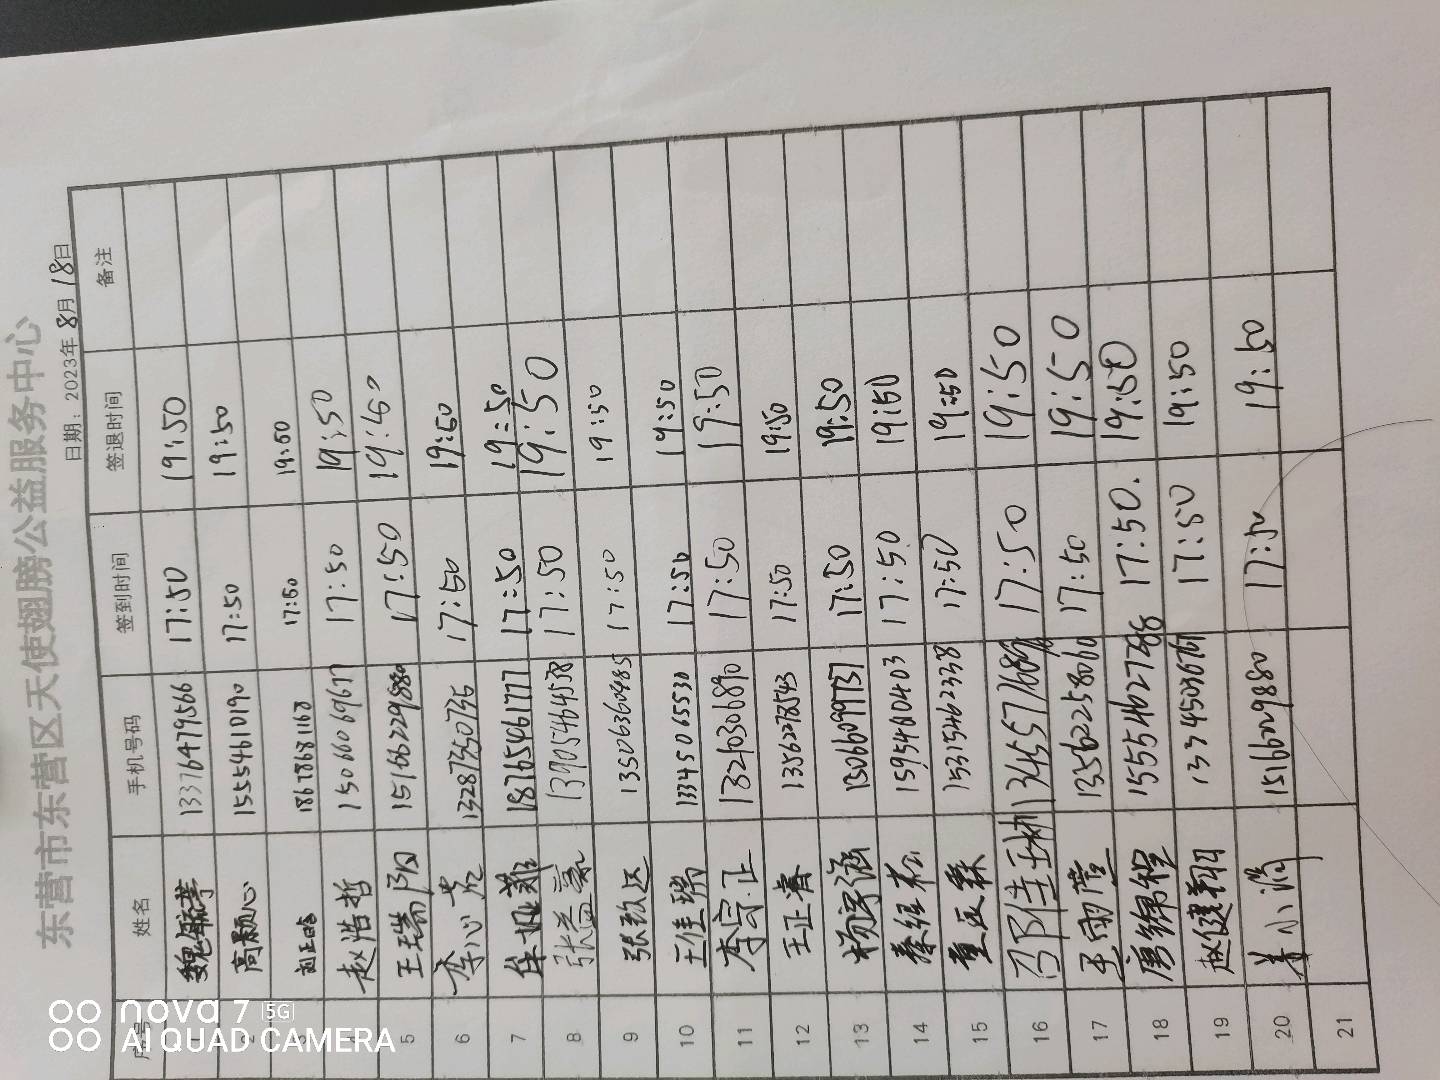 东营市东营区天使翅膀公益服务中心
日期：2023年8月18日
序号 姓名 手机号码 签到时间 签退时间 备注
13376479566 17:50 19:50
高颢心 15554610190 17:50 19:50
18678681168 17:50 19:50
赵浩哲 15066069677 17:50 19:50
5 王瑞阳 17:50 19:50
6 李心 13287350735 17:50 19:50
7 18765461777 17:50 19:50
8 张益豪 13905464538 17:50 19:50
9 张致远 13506360485 17:50 19:50
10 王佳瑞 13345065530 17:50 19:50
11 李守正 13240306890 17:50 19:50
12 王正睿 13562278543 17:50 19:50
13 杨宇涵 15066099737 17:50 19:50
14 秦经松 15954040403 17:50 19:50
15 董辰霖 15315462338 17:50 19:50
16 17:50 19:50
17 王雨萱 13562258060 17:50 19:50
18 唐锦程 15554627788 17:50. 19:50
19 赵健翔 17:50 19:50
20 小涵 15166029880 17:50 19:50
21
nova 7 5G
AI QUAD CAMERA